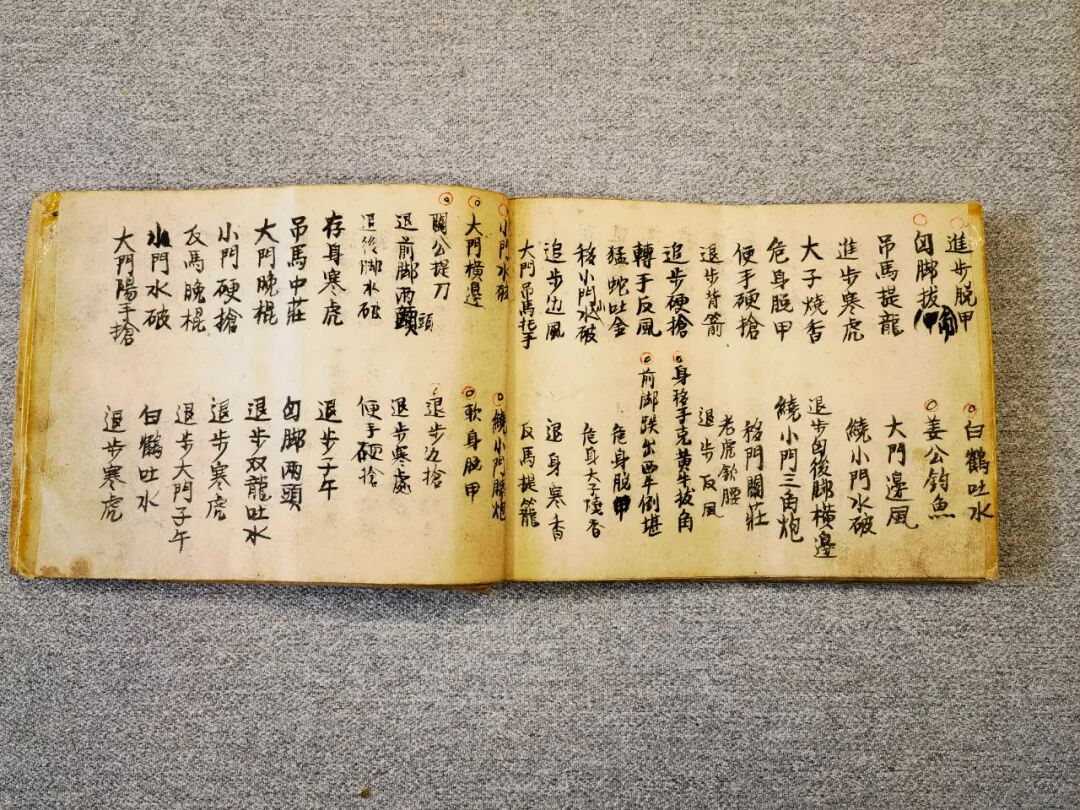 進步脱甲
匈脚拔
吊馬提龍
進步寒虎
大子燒香
危身脱甲
便手硬搶
退步背箭
追步硬搶
轉手反風
猛蛇吐金
移小門水破
追步边風
大門吊馬托手
白鶴吐水
姜公釣魚
大門邊風
繞小門水破
退步匈後脚橫邊
繞小門三角炮
移門關莊
老虎欽腰
退步反風
身移手克黄牛拔角
前脚跌出西牛倒堪
危身脱甲
危身大子燒香
退身寒香
反馬提籠
小門水破
大門橫邊
關公提刀
退前脚兩頭
退後脚水破
存身寒虎
吊馬中莊
大門晚棍
小門硬搶
反馬晚棍
小門水破
大門陽手搶
繞小門膝炮
軟身脱甲
退步边搶
退步寒處
便手硬搶
退步子午
匈脚兩頭
退步双龍吐水
退步寒虎
退步大門子午
白鶴吐水
退步寒虎